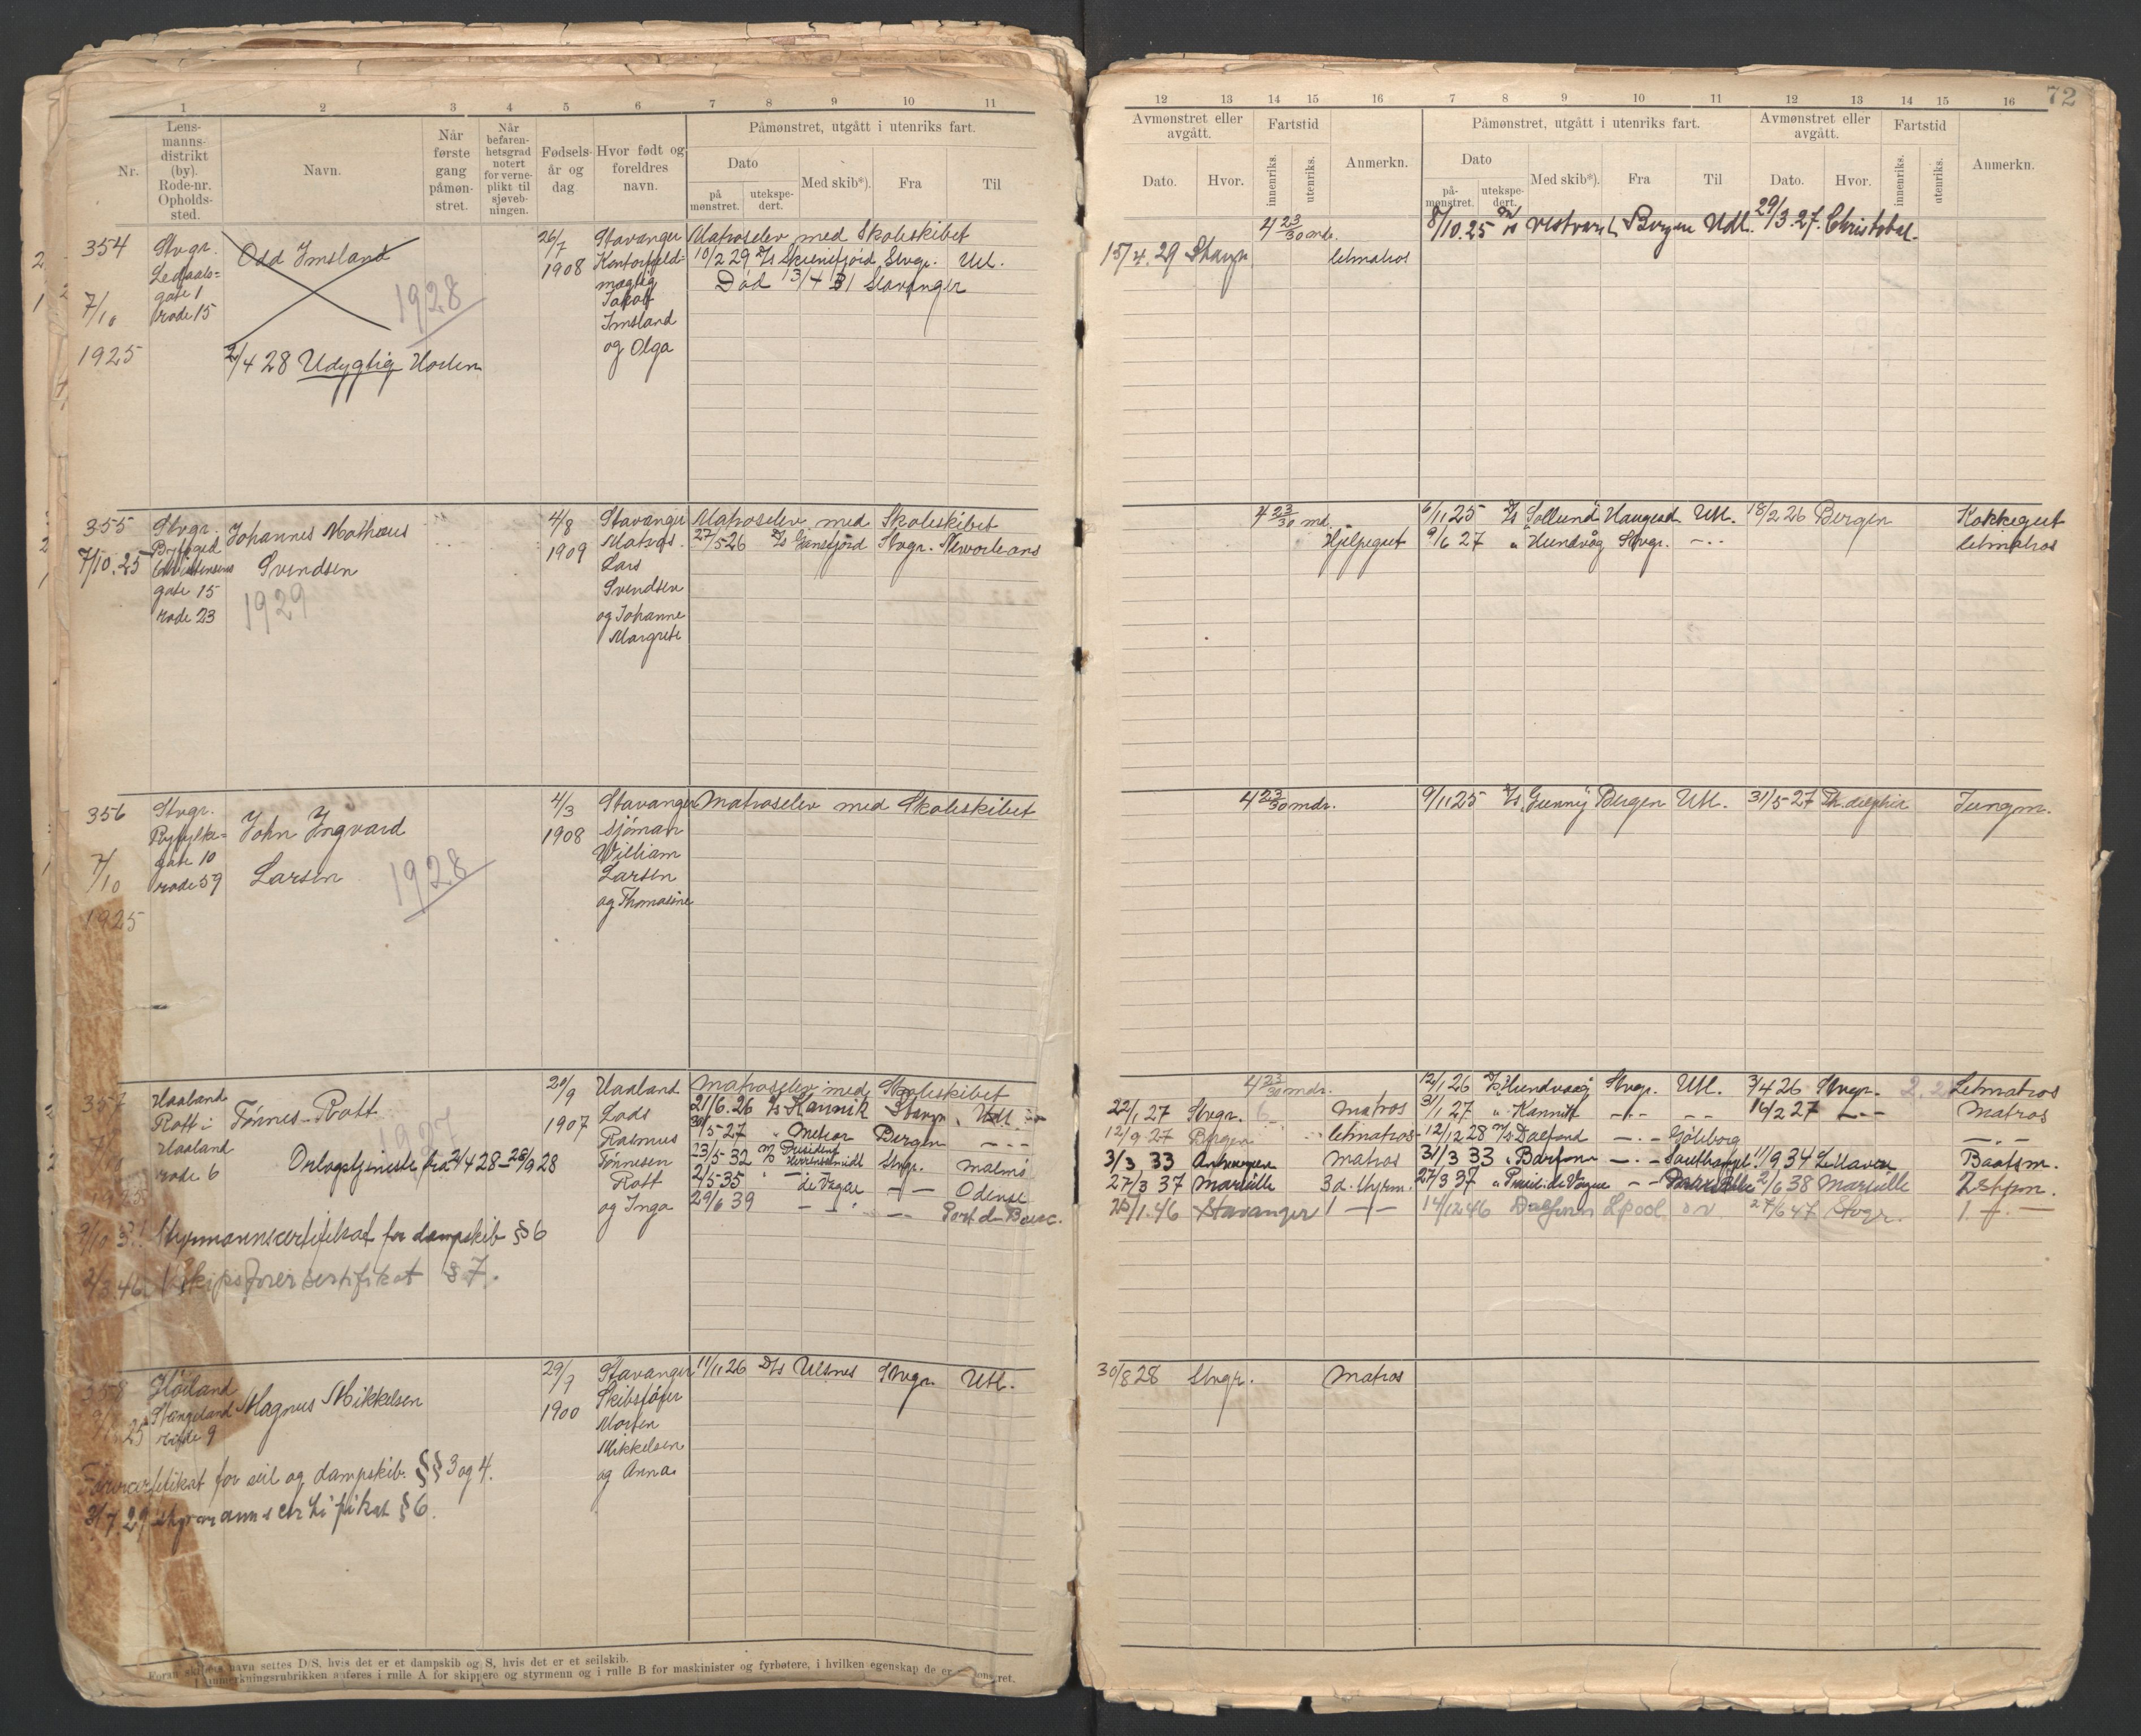 1 2 3 4 5 6 7 8 9 10 11
Nr.
Lens-
manns-
distrikt
(by).
Rode-nr.
Opholds-
sted.
Navn.
Når
første
gang
påmøn-
stret.
Når
befaren-
hetsgrad
notert
for verne-
plikt til
sjøveb-
ningen.
Fødsels-
år og
dag.
Hvor født og
foreldres
navn.
Påmønstret, utgått i utenriks fart.
Dato
på
mønstret.
utekspe-
dert.
Med skib*).
Fra
Til
354
7/10
1925
Stvgr.
Ledaals=
gate 1
rode 15
Odd Imsland
1928
2/4 28 Udygtig Horten
26/7
1908
Stavanger
Kontorfuld=
mægtig
Jakob
Imsland
og Olga
Matroselev med Skoleskibet
10/2 29 D/s Skiensfjord Stvgr. Utl.
Død 13/4 31 Stavanger
355
7/10.25
Stvgr.
Christensens
gate 15
rode 23
Johannes Mathæus
Svendsen
1929
4/8
1909
Stavanger
Matros
Lars
Svendsen
og Johanne
Margrete
Matroselev med Skoleskibet
27/5 26 D/s Stvgr. Neworleans
356
7/10
1925
Stvgr.
Ryfylke=
gate 10
rode 59
John Ingvard
Larsen
1928
4/3
1908
Stavanger
Sjöman
William
Larsen
og Thomasine
Matroselev med Skoleskibet
357
Haaland
Rott i
Haaland
rode 6
Tönnes Rott
1927
Orlogstjeneste fra 2/4 28 – 28/9 28
Styrmannscertifikat for dampskib § 6
Skipsförersertifikat § 7.
20/9
1907
Haaland
Lods
Rasmus
Tönnesen
Rott
og Inga
Matroselev med Skoleskibet
21/6.26 D/s Kannik Stvgr. Utl.
30/5-27 " Meteor Bergen – –
23/5-32 M/s President Herrenschmidt Stvgr. Malmö
2/5 35 " de Vogüe – – Odense
29/6 39 – – Port de Bouc.
358
Höiland
Stangeland
rode 9
Magnus Mikkelsen
Förercertifikat for seil og dampskib. §§ 3 og 4.
3/7.29 styrmannscertifikat § 6.
29/7
1900
Stavanger
Skibsförer
Morten
Mikkelsen
og Anna
11/11 26 D/s Ulsnes Stvgr. Utl.
Foran skibets navn settes D/S, hvis det er et dampskib og S, hvis det er et seilskib.
I anmerkningsrubrikken anføres i rulle A for skippere og styrmenn og i rulle B for maskinister og fyrbøtere, i hvilken egenskap de er
72
12 13 14 15 16 7 8 9 10 11 12 13 14 15 16
Avmønstret eller
avgått.
Dato. Hvor.
Fartstid
innenriks.
utenriks.
Anmerkn.
Påmønstret, utgått i utenriks fart.
Dato
på-
mønstret.
utekspe-
dert.
Med skib*).
Fra
Til
Avmønstret eller
avgått.
Dato. Hvor.
Fartstid
innenriks.
utenriks.
Anmerkn.
4 23/30 mdr. 8/10.25 Vestvard Bergen Utl. 29/3.27. Christobal.
15/4.29 Stvgr. letmatros
4 23/30 md. 6/11 25 D/s Sollund Haugesd. Utl. 18/2 26 Bergen Kokkegut
Hjelpegut 9/6 27 " Hundvåg Stvgr. – – letmatros
4 23/30 mdr. 9/11 25 D/s Gunny Bergen Utl. 31/5-27 Jungm.
4 23/30 mdr. 12/1 26 D/s Hundvaag Stvgr. Utl. 3/4 26 Stvgr. 2.2 Letmatros
22/1 27 Stvgr. Matros 31/1 27 " Kannik – – – 14/2 27 – – Matros
12/9 27 Bergen letmatros 12/12 28 M/s Dalfonn – – Göteborg – –
3/3 33 Antwerpen Matros 31/3 33 " – – 11/9 34 Le Havre Baatsm.
27/3 37 Marseille 3d. styrm. 27/3 37 " Presid. de Vogüe – – 2/6 38 Marseille 2 styrm.
25/1.46 Stavanger 1 – – 14/12 46 Dalfonn Lpool 27/6 47 Stvgr. 1. – –
30/8 28 Stvgr. Matros